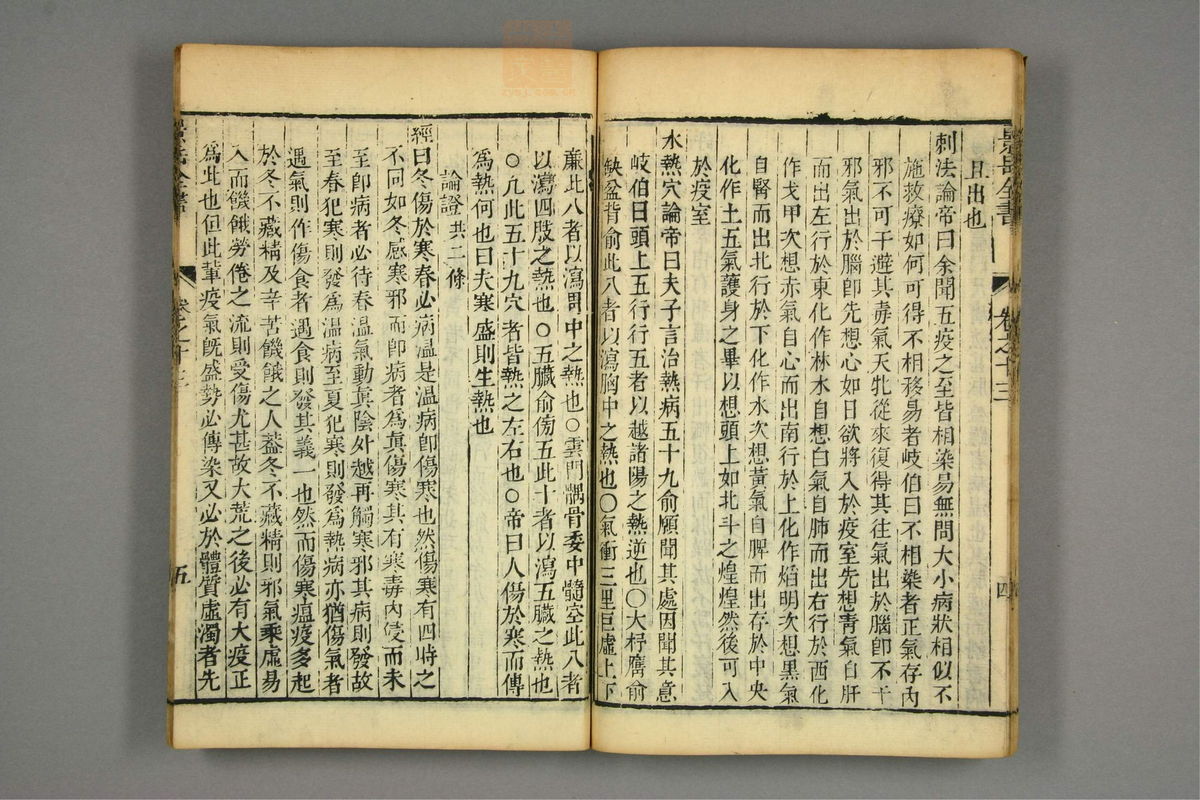 景岳全書
卷之十三
四
且出也
刺法論帝曰余聞五疫之至皆相染易無問大小病狀相似不
施救療如何可得不相移易者岐伯曰不相染者正氣存內
邪不可干避其毒氣天牝從來復得其往氣出於腦卽不干
邪氣出於腦卽先想心如日欲將入於疫室先想靑氣自肝
而出左行於東化作林木自想白氣自肺而出右行於西化
作戈甲次想赤氣自心而出南行於上化作焰明次想黑氣
自腎而出北行於下化作水次想黃氣自脾而出存於中央
化作土五氣護身之畢以想頭上如北斗之煌煌然後可入
於疫室
水熱穴論帝曰夫子言治熱病五十九俞願聞其處因聞其意
岐伯曰頭上五行行五者以越諸陽之熱逆也○大杼膺俞
缺盆背俞此八者以瀉胸中之熱也○氣衝三里巨虛上下
廉此八者以瀉胃中之熱也○雲門髃骨委中髓空此八者
以瀉四肢之熱也○五臟俞傍五此十者以瀉五臟之熱也
○凡此五十九穴者皆熱之左右也○帝曰人傷於寒而傳
爲熱何也曰夫寒盛則生熱也
論證共二條
經曰冬傷於寒春必病溫是溫病卽傷寒也然傷寒有四時之
不同如冬感寒邪而卽病者爲眞傷寒其有寒毒內侵而未
至卽病者必待春溫氣動眞陰外越再觸寒邪其病則發故
至春犯寒則發爲溫病至夏犯寒則發爲熱病亦猶傷氣者
遇氣則作傷食者遇食則發其義一也然而傷寒瘟疫多起
於冬不藏精及辛苦饑餓之人葢冬不藏精則邪氣乘虛易
入而饑餓勞倦之流則受傷尤甚故大荒之後必有大疫正
爲此也但此輩疫氣旣盛勢必傳染又必於體質虛濁者先
景岳全書
卷之十三
五